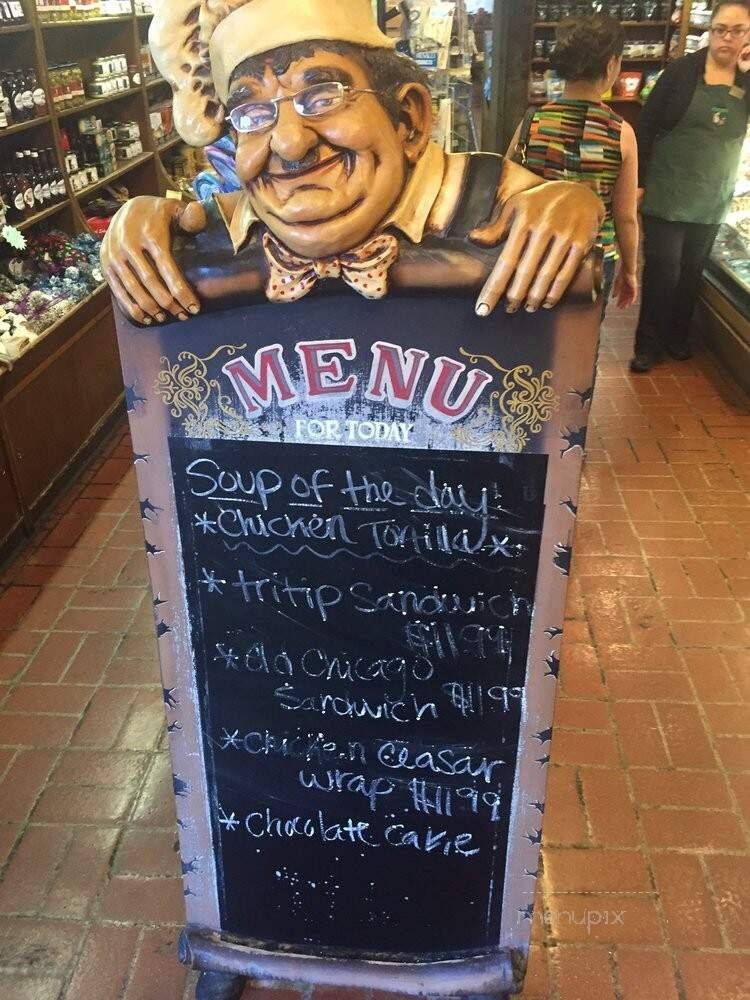 MENU
FOR TODAY
Soup of the day!
*Chicken Tortilla*
*tritip Sandwich
$11.99
*Old Chicago
Sandwich $11.99
*Chicken Ceasar
wrap $11.99
*Chocolate Cake
menupix